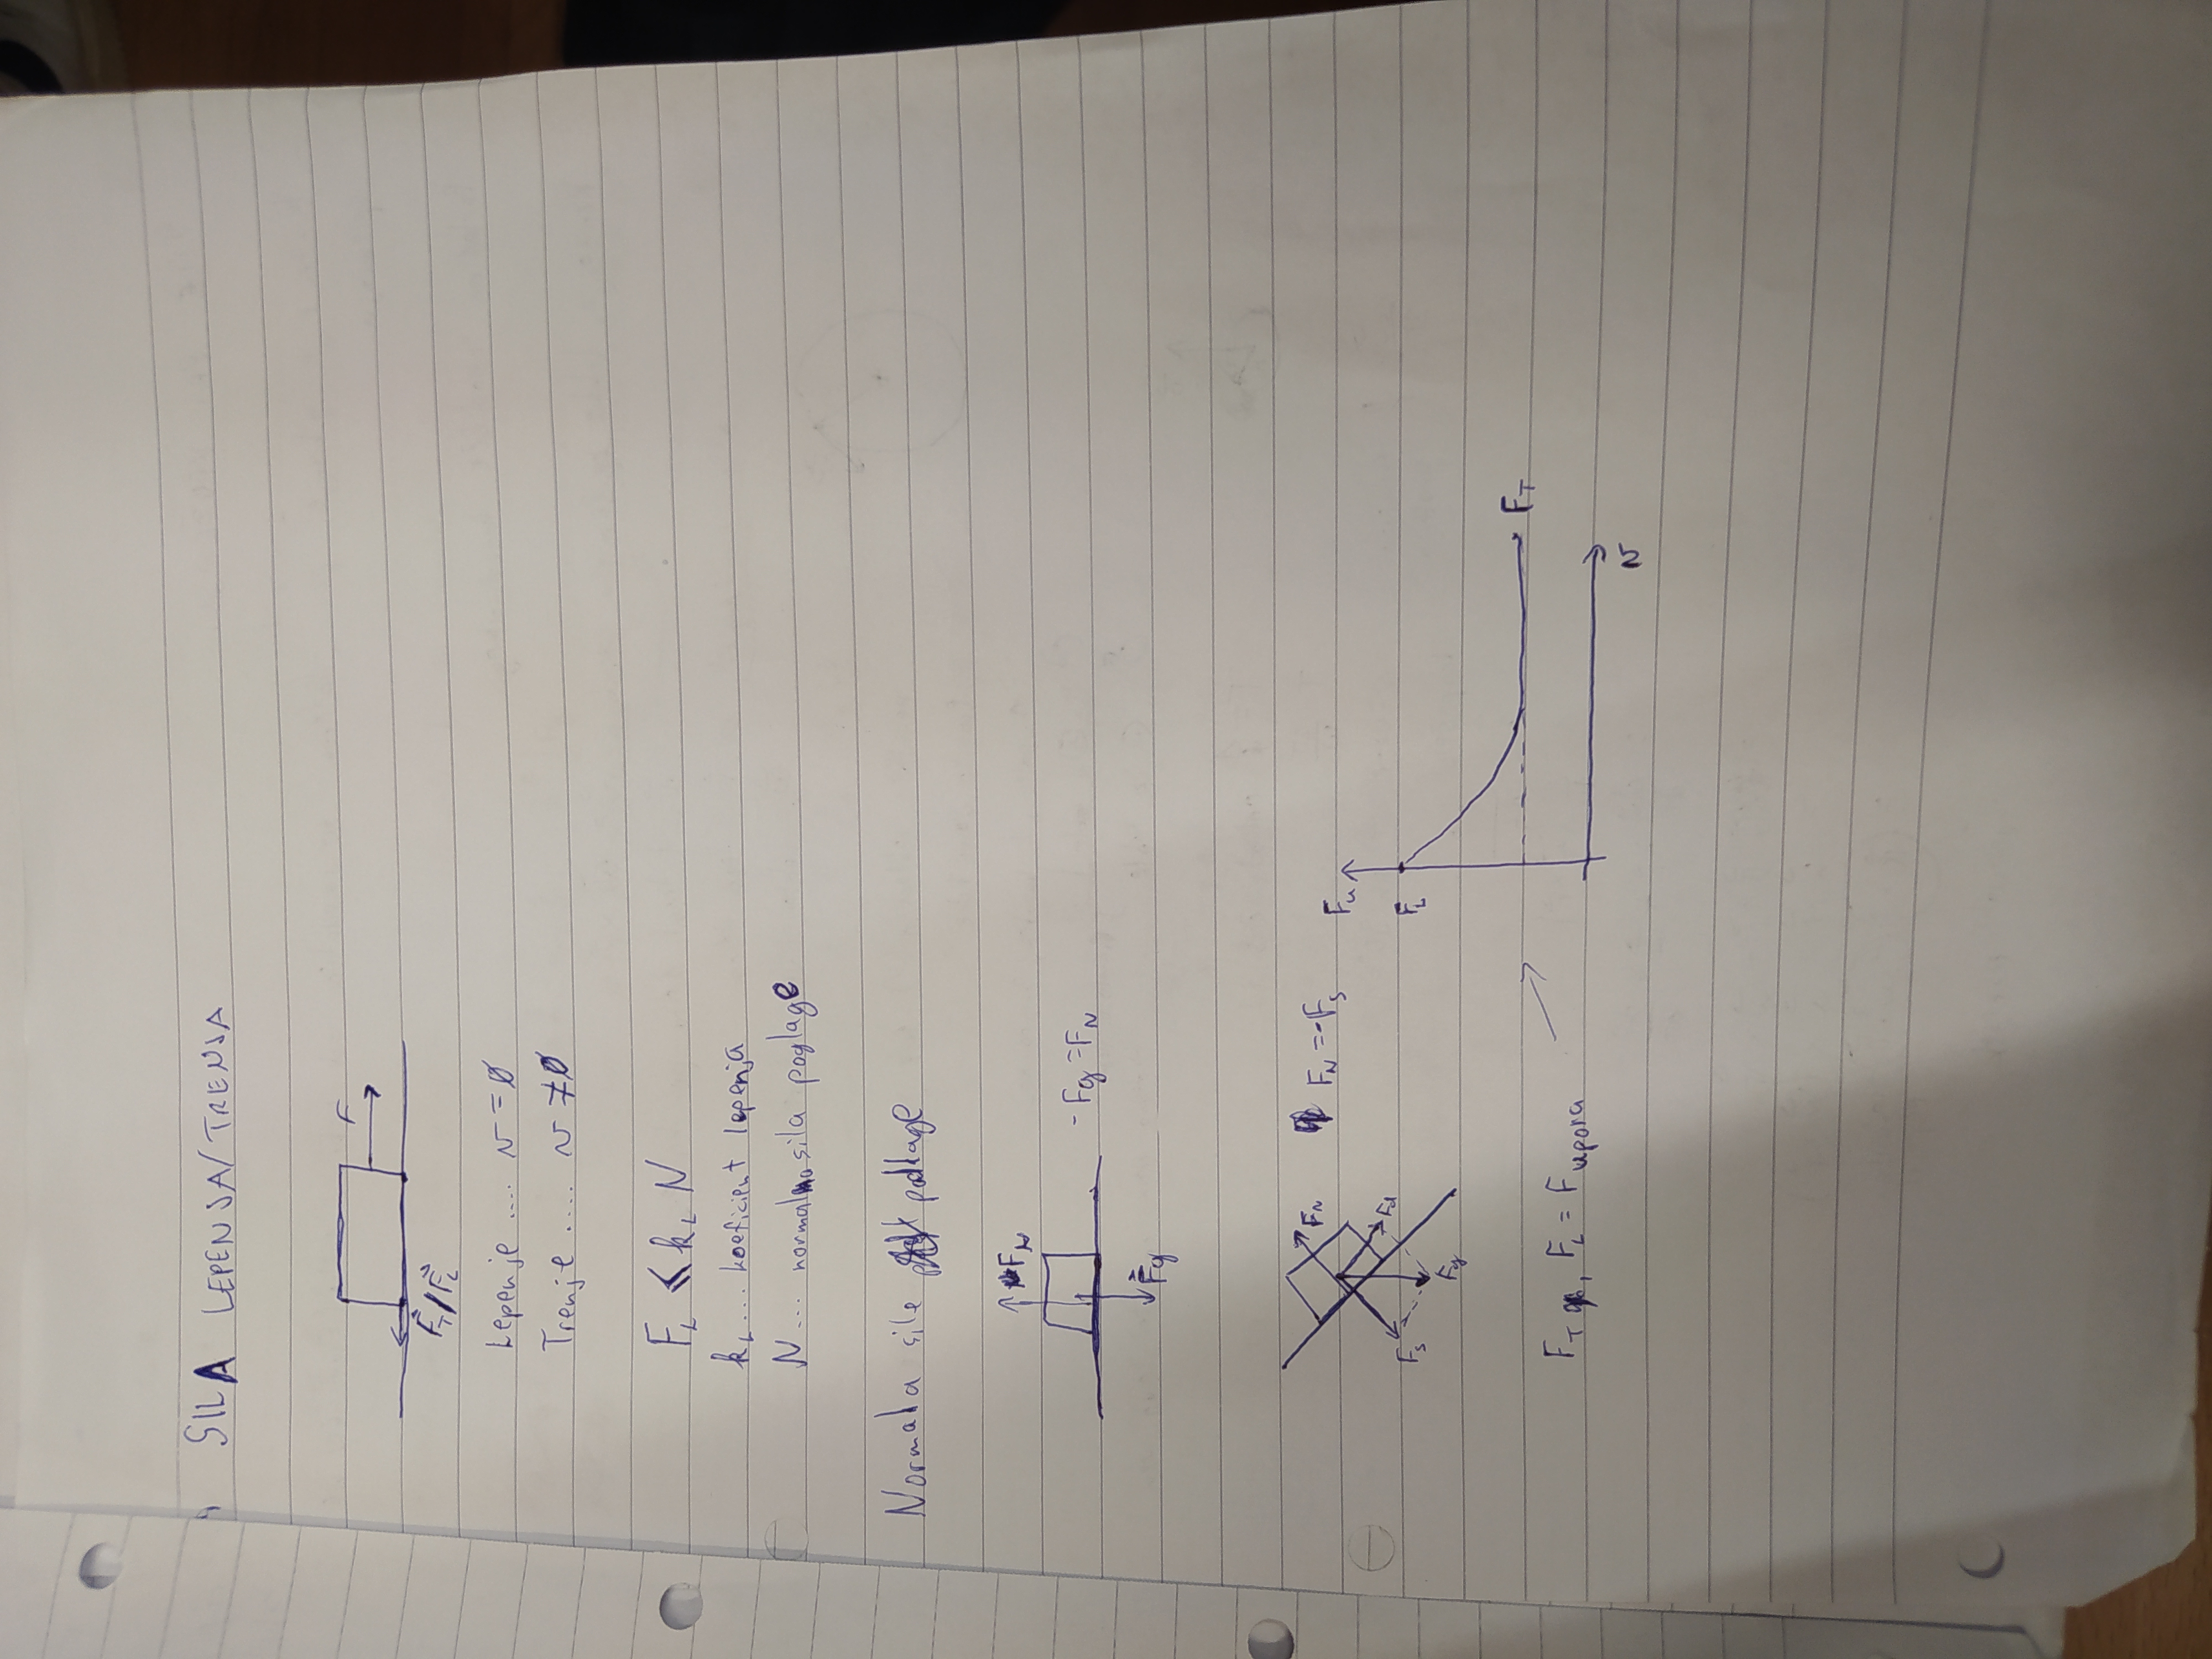 SILA LEPENJA/TRENJA
F
F⃗_T/F⃗_L
Lepenje .... v = 0
Trenje .... v ≠ 0
F_L ≤ k_L N
k_L ... koeficient lepenja
N ... normalna sila poglage
Normala sile podlage
F_N
-Fg = F_N
F⃗g
F_N
F_N = -F_s
F_d
F_s
Fg
F_u
F_L
F_T
F_T, F_L = F_upora
v